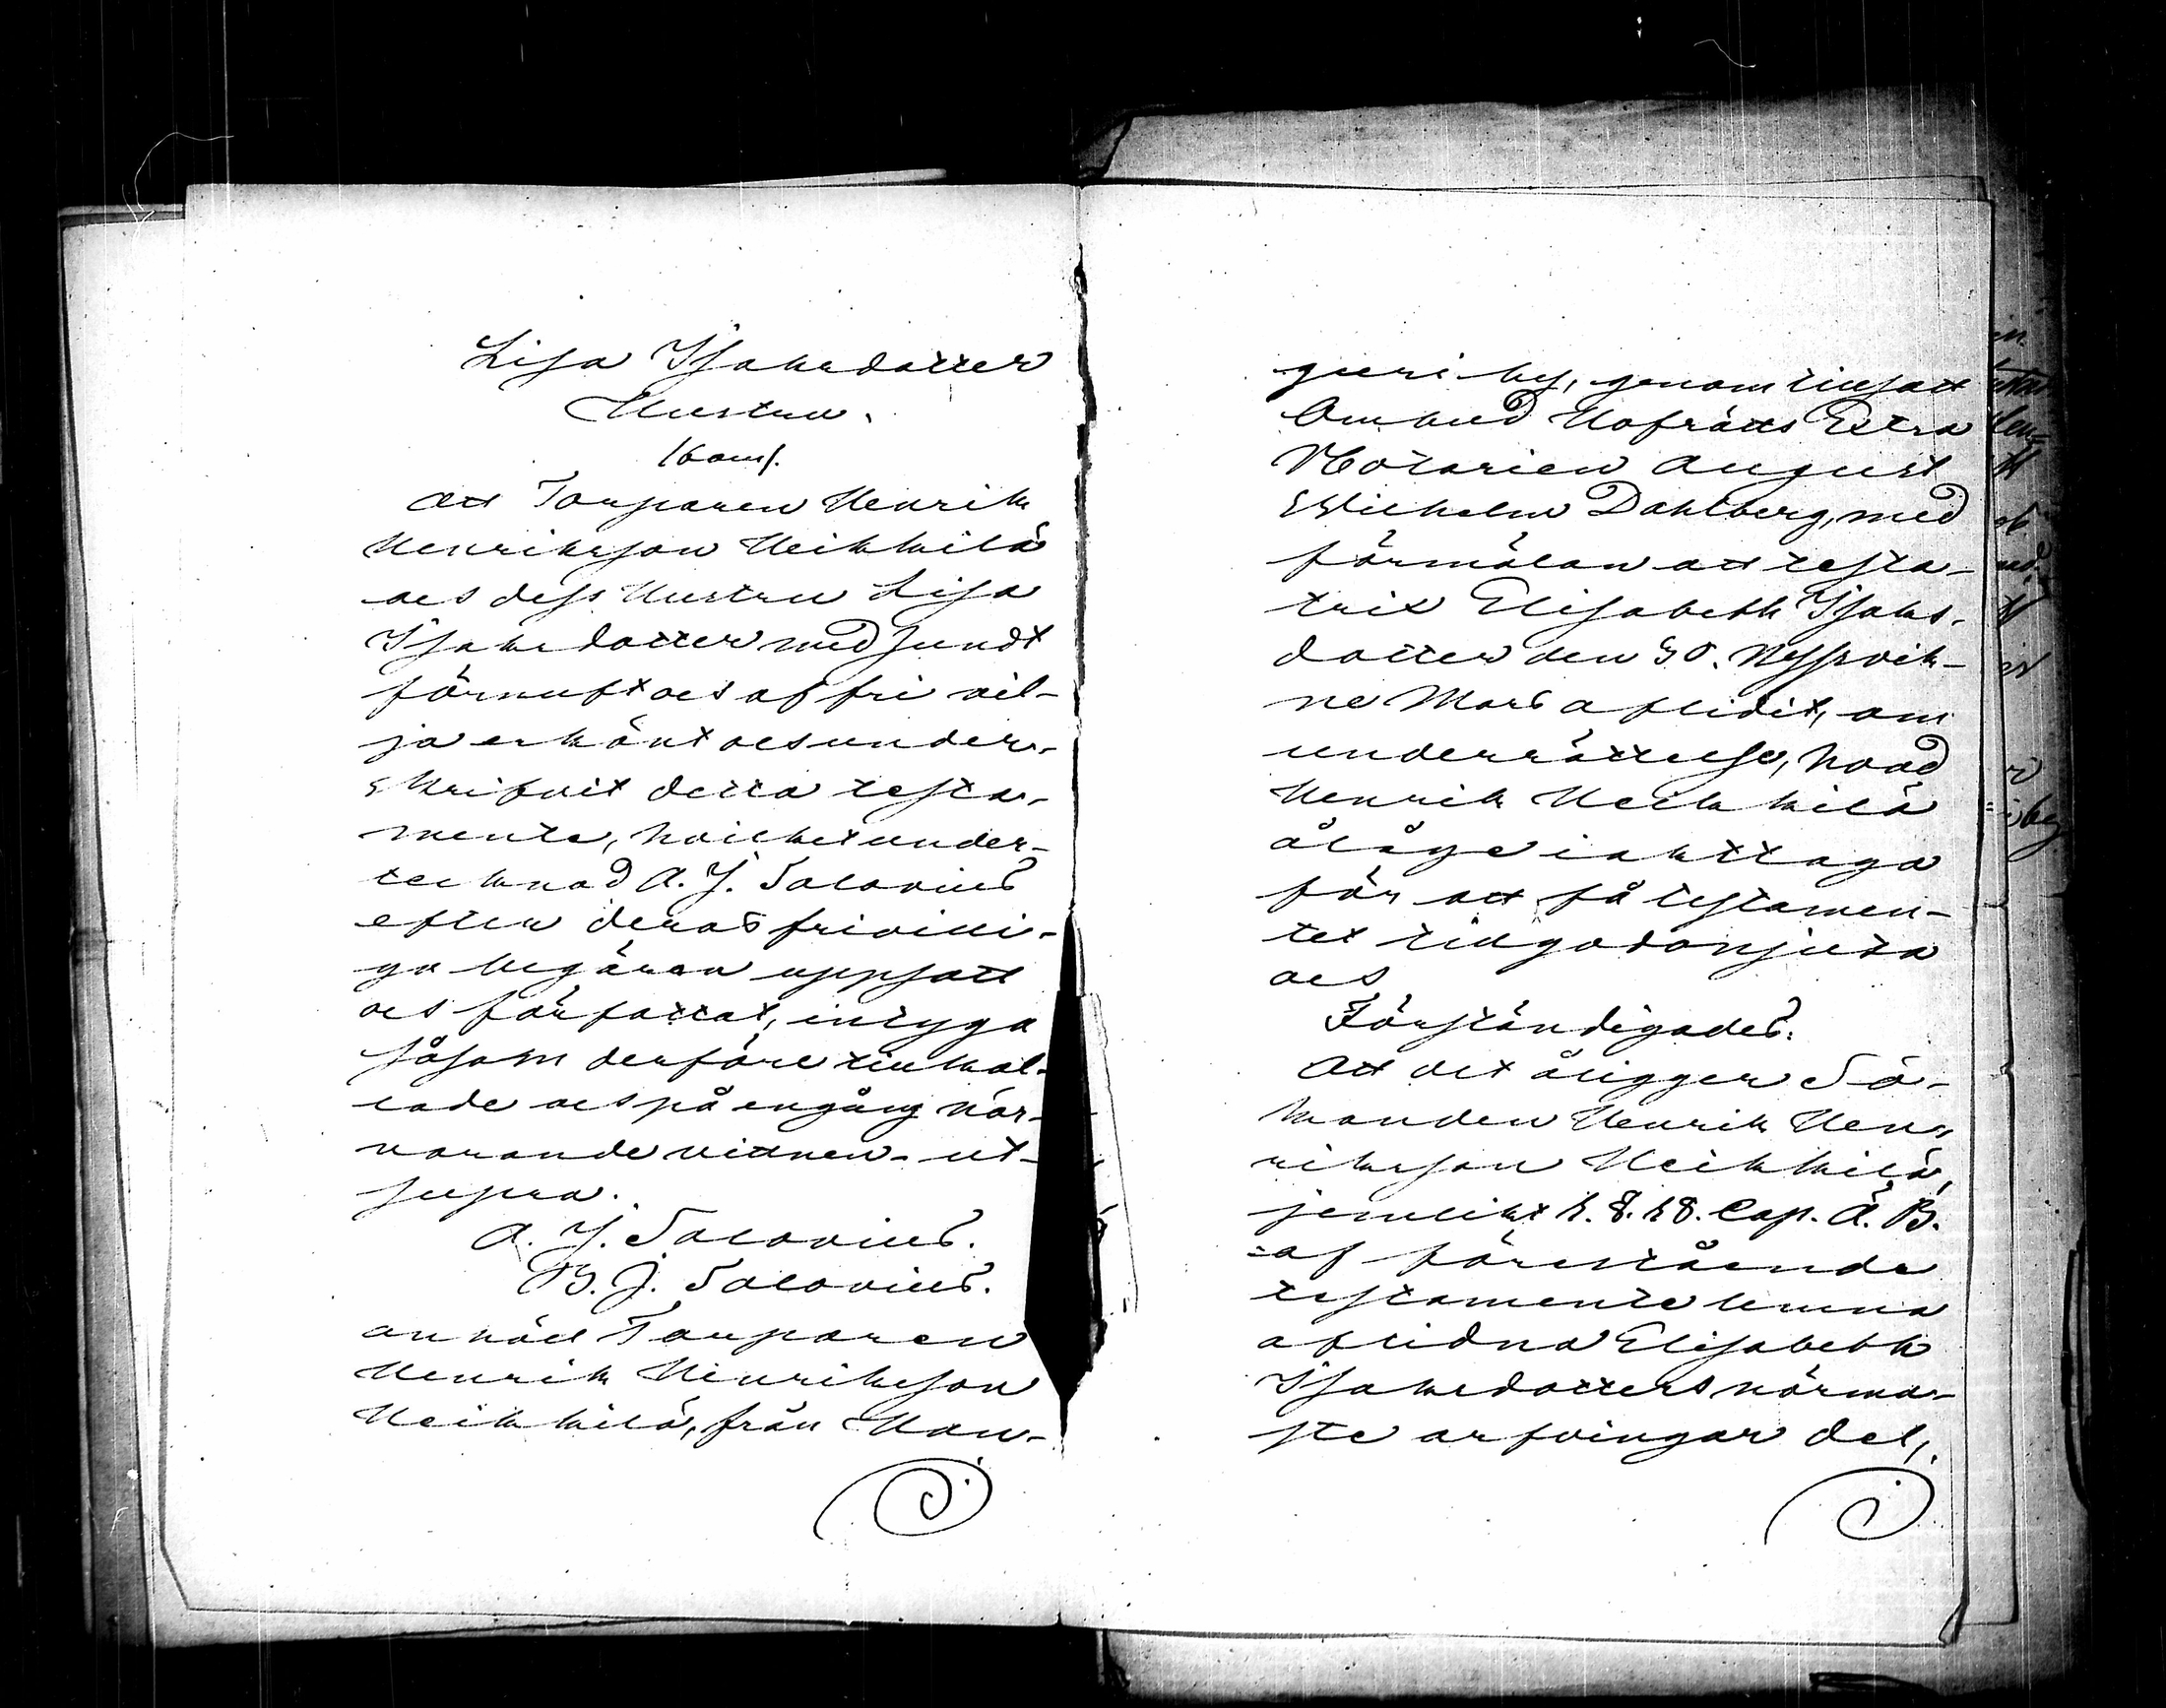 Lisa Isaksdotter
Hustru.
/bom/.
Att Torparen Henrik
Henriksson Heikkilä
och dess Hustru Lisa
Isaksdotter med sundt
förnuft och af fri vil-
ja erkänt och under-
skrifvit detta testa-
mente, hvilket under-
tecknad A. J. Salovius
efter deras frivilli-
ga begäran uppsatt
och författat, intyga
såsom derföre tillkal-
lade och på engång när-
varande vittnen. ut-
supra.
A. J. Salovius.
B. J. Salovius.
anhöll Torparen
Henrik Henriksson
Heikkilä, från
by, genom tillsatt
Ombud Hofrätts Extra
Notarien August
Wilhelm Dahlberg, med
förmälan att testa-
trix Elisabeth Isaks-
dotter den 30. Nästvik-
ne Mars aflidit, om
underrättelse, hvad
Henrik Heikkilä
ålåge iakttaga
för att få testamen-
tet tillgodonjuta
och
Förständigades:
Att det åligger Sö-
kanden Henrik Hen-
riksson Heikkilä,
jemlikt 1. §. 18. Cap. Ä. B.
af förestående
testamente lemna
aflidna Elisabeth
Isaksdotters närma-
ste arfvingar del,